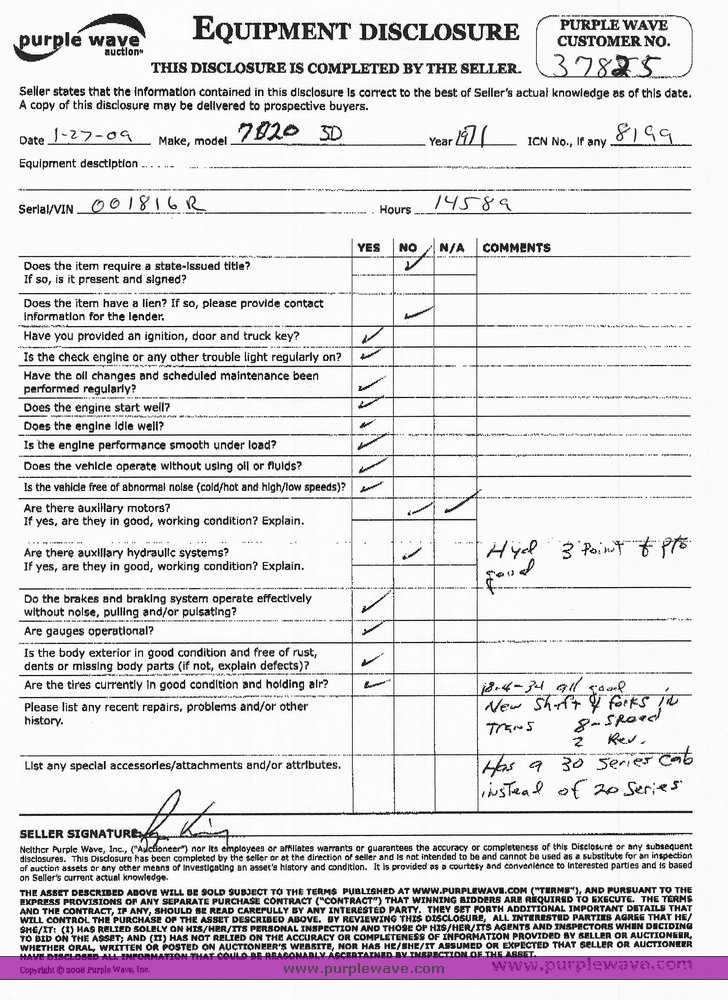 purple wave
auction
EQUIPMENT DISCLOSURE
PURPLE WAVE
CUSTOMER NO.
37825
THIS DISCLOSURE IS COMPLETED BY THE SELLER.
Seller states that the information contained in this disclosure is correct to the best of Seller's actual knowledge as of this date.
A copy of this disclosure may be delivered to prospective buyers.
Date 1-27-09 Make, model 7020 JD Year 1971 ICN No., if any 8199
Equipment description
Serial/VIN 001816R Hours 14589
YES NO N/A COMMENTS
Does the item require a state-issued title?
If so, is it present and signed?
Does the item have a lien? If so, please provide contact
information for the lender.
Have you provided an ignition, door and truck key?
Is the check engine or any other trouble light regularly on?
Have the oil changes and scheduled maintenance been
performed regularly?
Does the engine start well?
Does the engine idle well?
Is the engine performance smooth under load?
Does the vehicle operate without using oil or fluids?
Is the vehicle free of abnormal noise (cold/hot and high/low speeds)?
Are there auxiliary motors?
If yes, are they in good, working condition? Explain.
Are there auxiliary hydraulic systems? Hyd 3 Point & pto
If yes, are they in good, working condition? Explain. good
Do the brakes and braking system operate effectively
without noise, pulling and/or pulsating?
Are gauges operational?
Is the body exterior in good condition and free of rust,
dents or missing body parts (if not, explain defects)?
Are the tires currently in good condition and holding air? 18-4-34 all good
Please list any recent repairs, problems and/or other New Shaft & forks in
history. Trans 8-Speed
2 Rev.
List any special accessories/attachments and/or attributes. Has a 30 series Cab
instead of 20 Series
SELLER SIGNATURE
Neither Purple Wave, Inc., ("Auctioneer") nor its employees or affiliates warrants or guarantees the accuracy or completeness of this Disclosure or any subsequent
disclosures. This Disclosure has been completed by the seller or at the direction of seller and is not intended to be and cannot be used as a substitute for an inspection
of auction assets or any other means of investigating an asset's history and condition. It is provided as a courtesy and convenience to interested parties and is based
on Seller's current actual knowledge.
THE ASSET DESCRIBED ABOVE WILL BE SOLD SUBJECT TO THE TERMS PUBLISHED AT WWW.PURPLEWAVE.COM ("TERMS"), AND PURSUANT TO THE
EXPRESS PROVISIONS OF ANY SEPARATE PURCHASE CONTRACT ("CONTRACT") THAT WINNING BIDDERS ARE REQUIRED TO EXECUTE. THE TERMS
AND THE CONTRACT, IF ANY, SHOULD BE READ CAREFULLY BY ANY INTERESTED PARTY. THEY SET FORTH ADDITIONAL IMPORTANT DETAILS THAT
WILL CONTROL THE PURCHASE OF THE ASSET DESCRIBED ABOVE. BY REVIEWING THIS DISCLOSURE, ALL INTERESTED PARTIES AGREE THAT HE/
SHE/IT: (I) HAS RELIED SOLELY ON HIS/HER/ITS PERSONAL INSPECTION AND THOSE OF HIS/HER/ITS AGENTS AND INSPECTORS WHEN DECIDING
TO BID ON THE ASSET; AND (II) HAS NOT RELIED ON THE ACCURACY OR COMPLETENESS OF INFORMATION PROVIDED BY SELLER OR AUCTIONEER,
WHETHER ORAL, WRITTEN OR POSTED ON AUCTIONEER'S WEBSITE, NOR HAS HE/SHE/IT ASSUMED OR EXPECTED THAT SELLER OR AUCTIONEER
HAVE DISCLOSED ALL INFORMATION THAT COULD BE REASONABLY ASCERTAINED BY INSPECTION OF THE ASSET.
Copyright © 2008 Purple Wave, Inc. www.purplewave.com www.purplewave.com